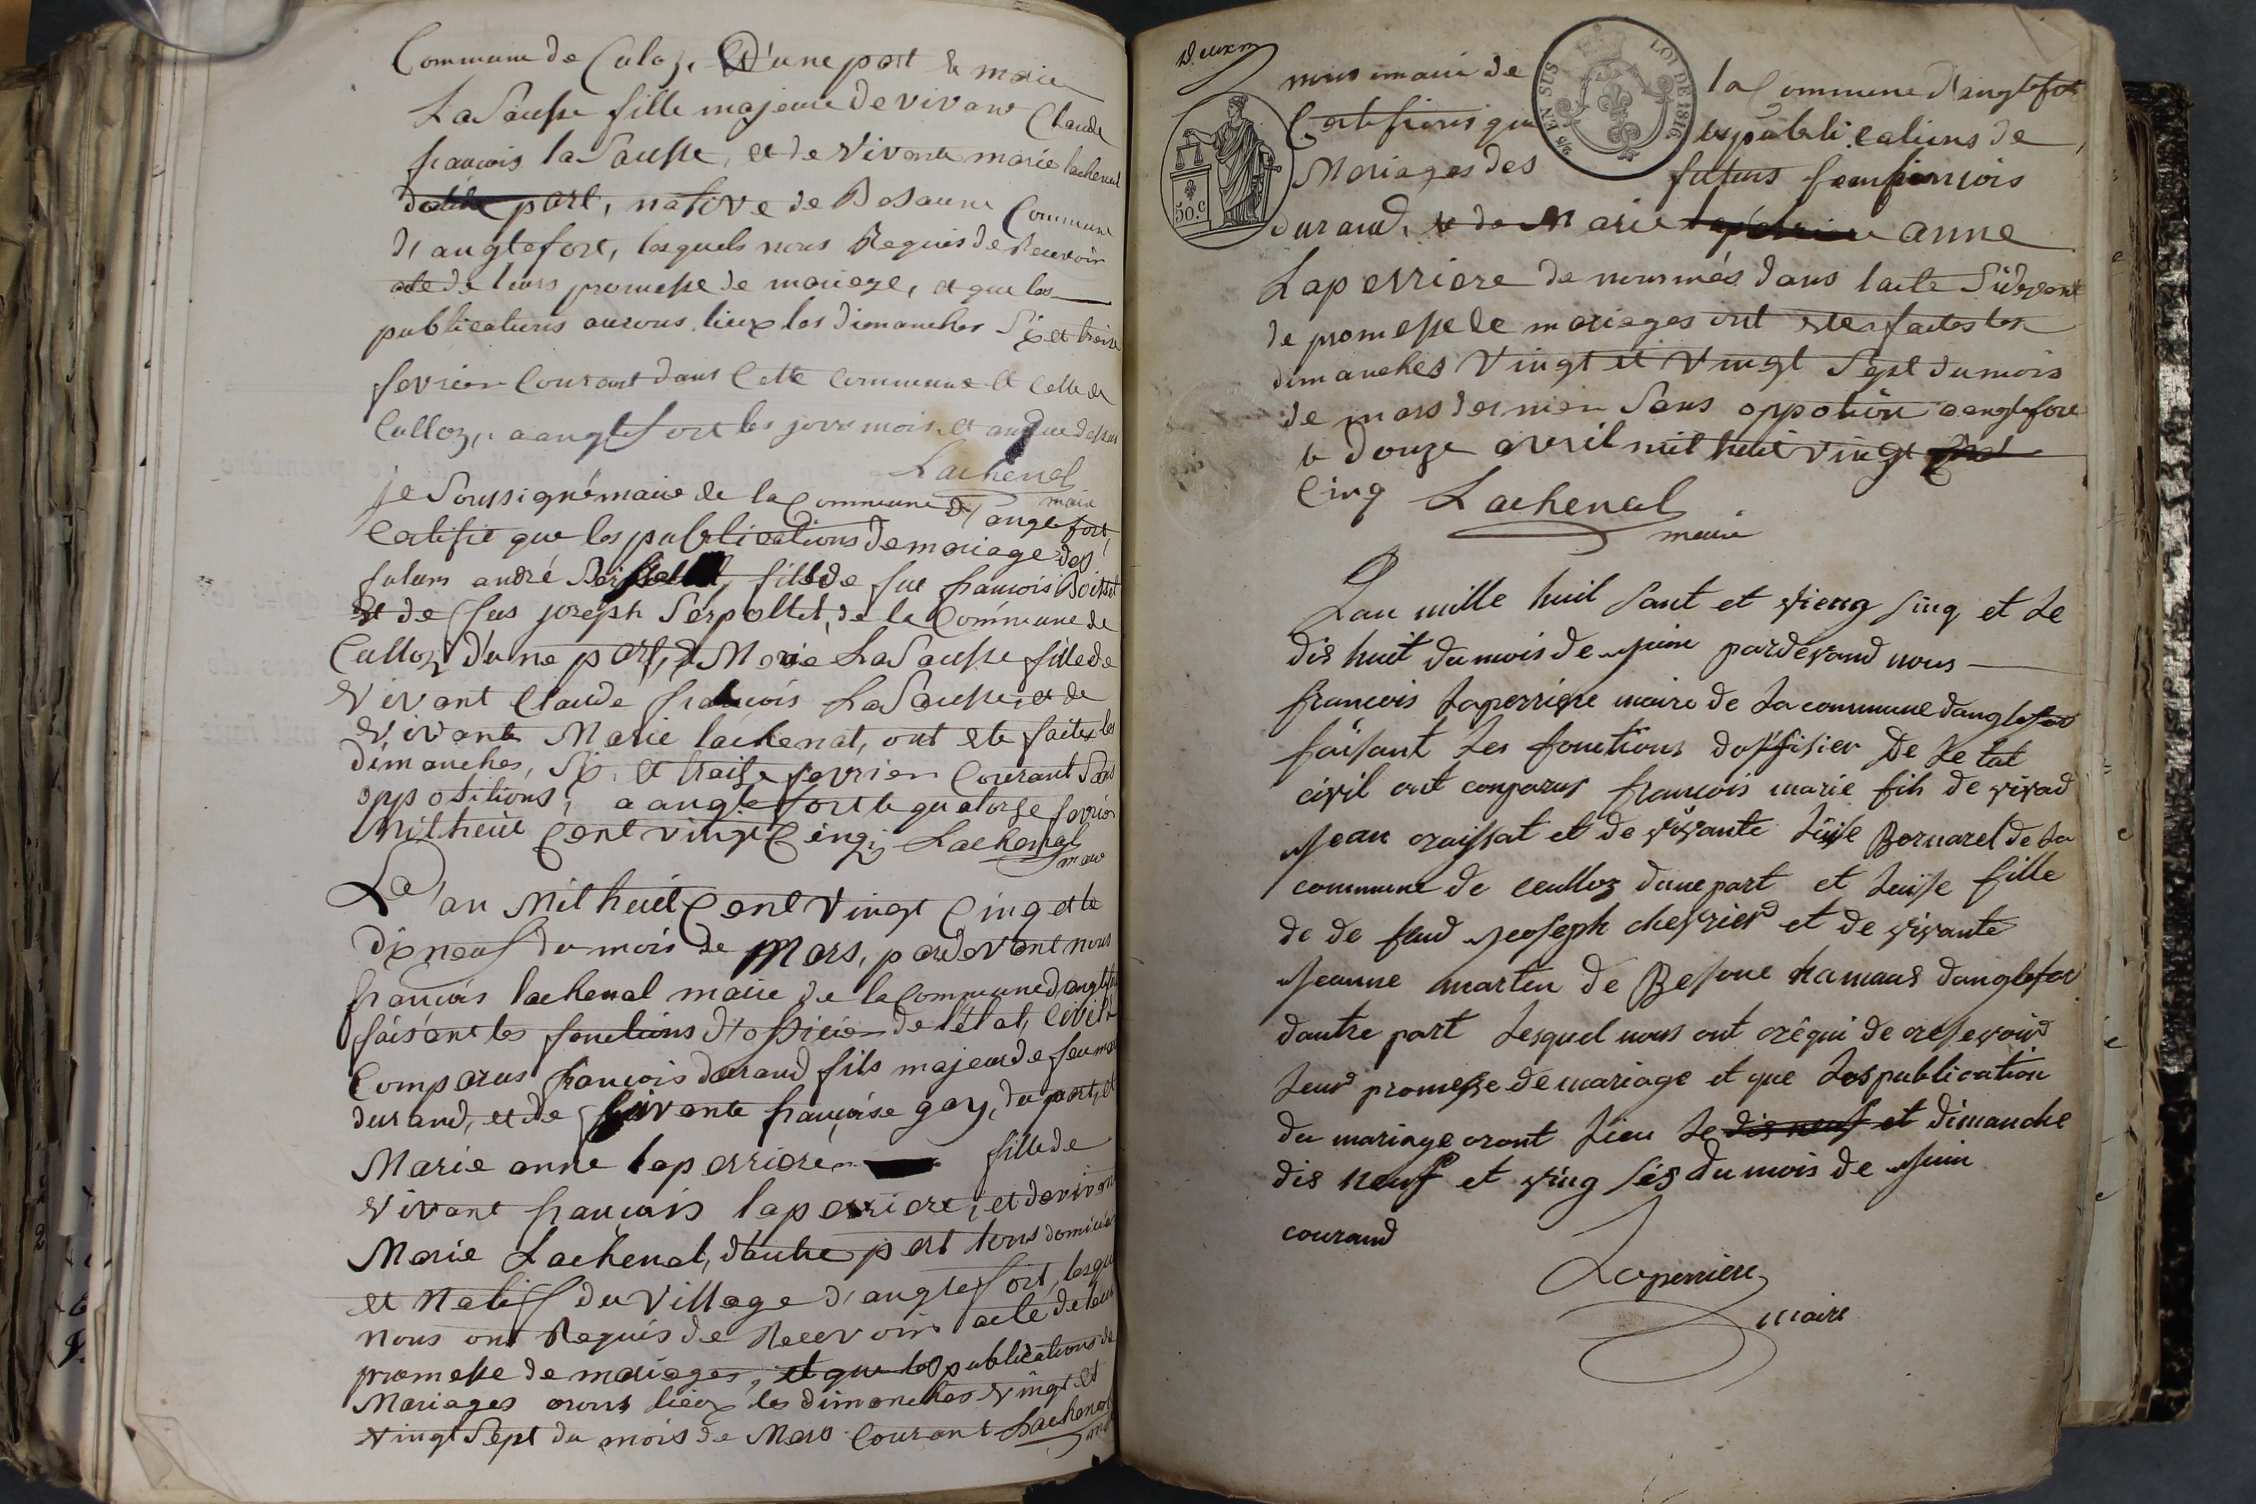 Commune de Culoz, d'une part & marie
LaSausse fille majeure de vivant Claude
francois laSausse, et de vivante marie lachenal
d'autre part, native de Bosaune Commune
d'anglefort, lesquels nous Requis de Recevoir
acte de leurs promesse de mariage, et que les
publications aurons lieux les dimanches Six et treize
fevrier Courant dans Cette commune & Celle de
Culloz, a anglefort les jour mois et an que dessus
Lachenal
maire
je Soussigné maire de la Commune d'anglefort,
Certifie que les publications de mariage des
futurs andré fils de feu francois Boisset
et de feus joseph Serpollet, de la Commune de
Culloz d'une part, & Marie LaSausse fille de
vivant Claude francois LaSausse, et de
vivante Marie lachenal, ont ete faites les
dimanches, Six et traize fevrier Courant Sans
oppositions, a anglefort le quatorze fevrier
Mil heuit Cent vingt Cinq, Lachenal
maire
L'an Mil heuit Cent vingt Cinq et le
dix neuf du mois de Mars, pardevant nous
francois lachenal maire de la Commune d'anglefort
faisant les fonctions d'officier de l'état Civil
Comparus francois durand fils majeur de feu
durand, et de vivante francoise gay, du part, et
Marie anne laperriere fille de
vivant francois laperriere, et de vivante
Marie Lachenal, d'autre part tous domiciliés
et Natif du Village d'anglefort, lesquels
nous ont Requis de Recevoir acte de leur
promesse de mariages, et que les publications de
Mariages orons lieux les dimanches vingt et
vingt Sept du mois de Mars Courant Lachenal
Deux
nous maire de la Commune d'anglefort
Certifions que les publications de
Mariages des futurs francois
durand, et de Marie anne
Laperriere denommés dans l'acte Sid'evant
de promesse de mariages ont ete faites les
dimanches vingt et vingt Sept du mois
de mars dernier Sans oppotion a anglefort
le douze avril mil heuit vingt
Cinq Lachenal
maire
EN SUS
LOI DE 1816
50.C
L'an mille huil sant et vieng sinq et Le
dis huit du mois de juin pardevand nous
francois Laperriere maire de La commune danglefort
faisant Les fonctions doffisier de Le tat
civil ont conparus francois marie fih de vivad
jean craissat et de vivante Luise Bornarel de La
commune de ceulloz dune part et Luise fille
de de feud joseph chevrier et de vivante
jeanne martin de Besone hamaus danglefor
dautre part Lesquel nous ont réqui de resevoird
Leur promesse de mariage et que Les publication
du mariage oront Lieu Le dis neuf et dimanche
dis neuf et ving sis du mois de juin
courand
Laperriere
maire